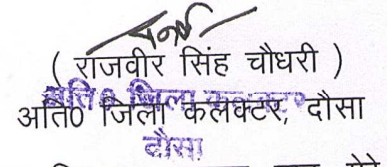 ( राजवीर सिंह चौधरी )
अति0 जिला कलक्टर, दौसा
अति० जिला कलक्टर
दौसा